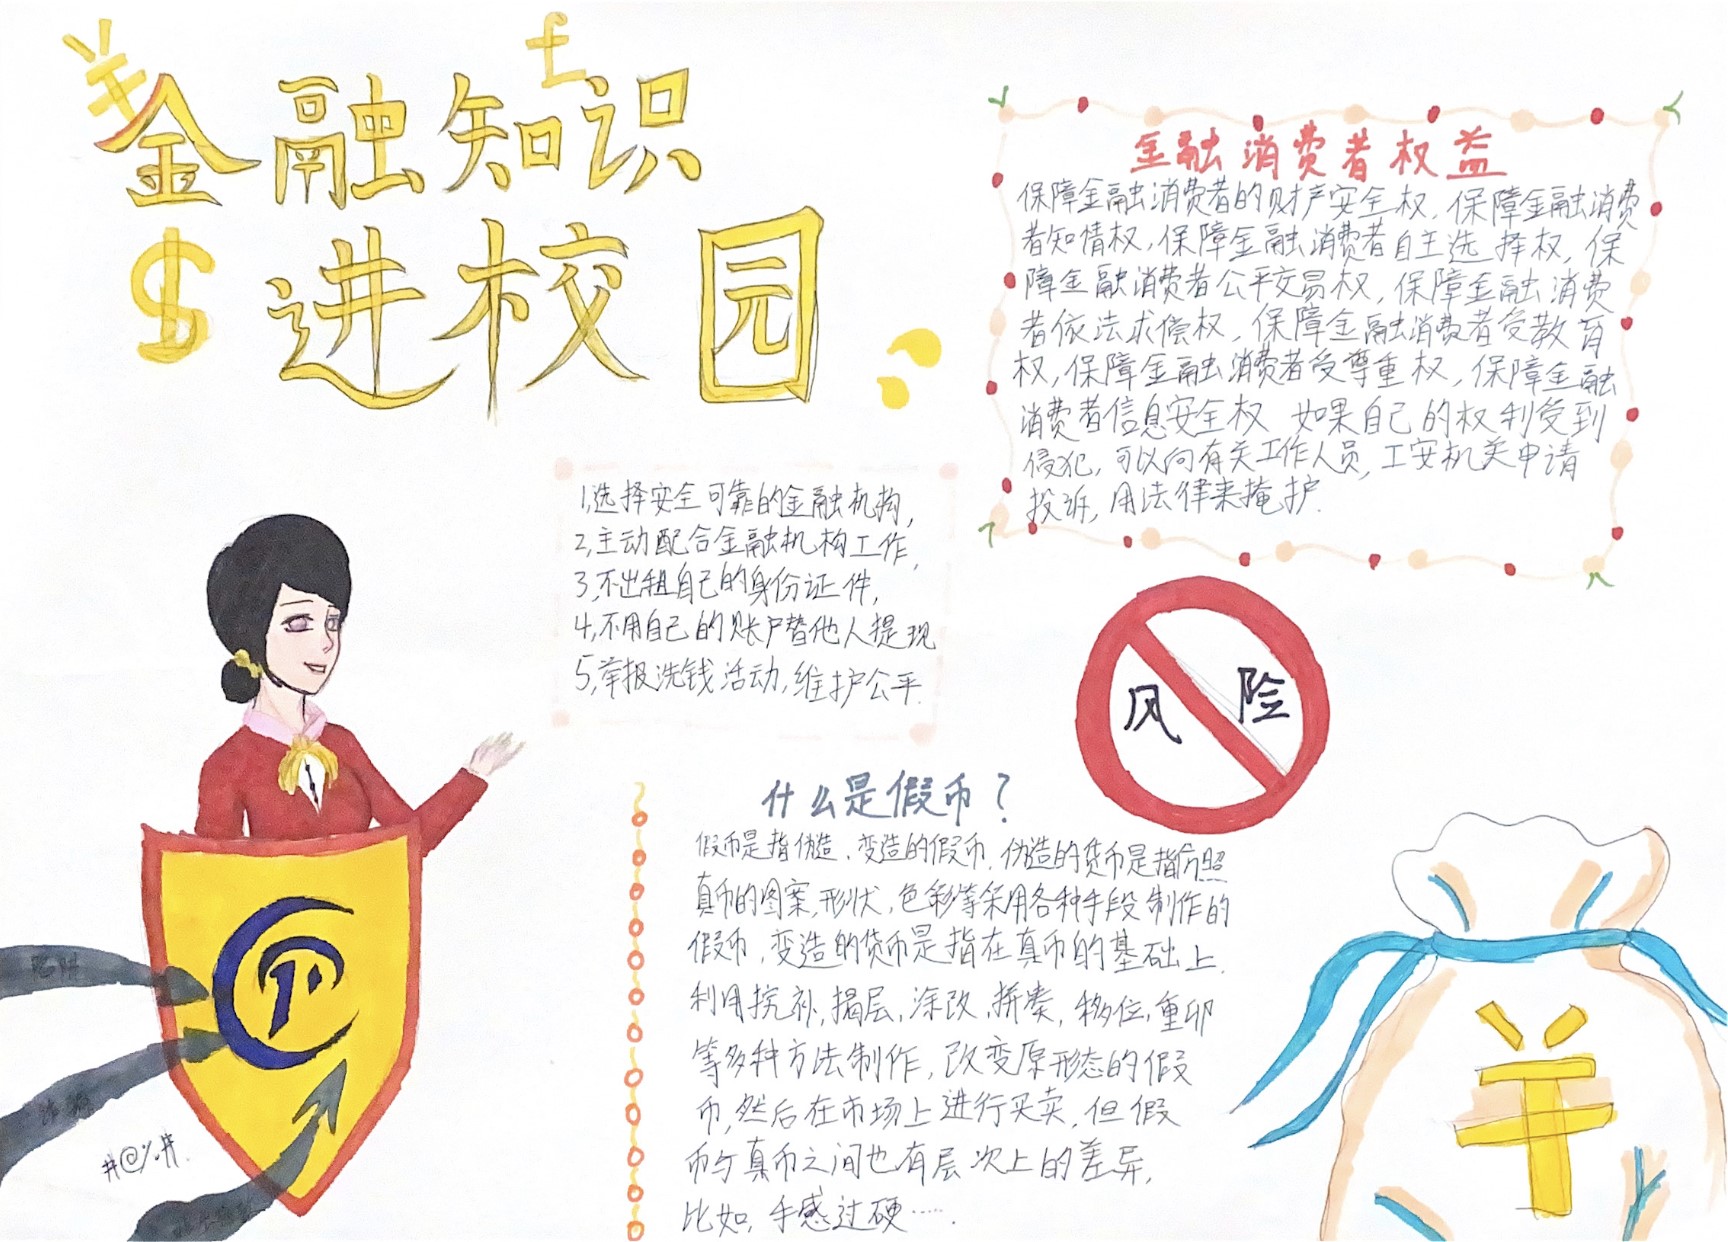 金融知识
进校园
金融消费者权益
保障金融消费者的财产安全权,保障金融消费
者知情权,保障金融消费者自主选择权,保
障金融消费者公平交易权,保障金融消费
者依法求偿权,保障金融消费者受教育
权,保障金融消费者受尊重权,保障金融
消费者信息安全权 如果自己的权利受到
侵犯,可以向有关工作人员,工安机关申请
投诉,用法律来掩护.
1,选择安全可靠的金融机构,
2,主动配合金融机构工作,
3,不出租自己的身份证件,
4,不用自己的账户替他人提现
5,举报洗钱活动,维护公平.
风 险
什么是假币?
假币是指伪造、变造的假币,伪造的货币是指仿照
真币的图案,形状,色彩等采用各种手段制作的
假币,变造的货币是指在真币的基础上,
利用挖补,揭层,涂改,拼凑,移位,重印
等多种方法制作,改变原形态的假
币,然后在市场上进行买卖,但假
币与真币之间也有层次上的差异,
比如,手感过硬…….
陷阱
#@%#.
¥